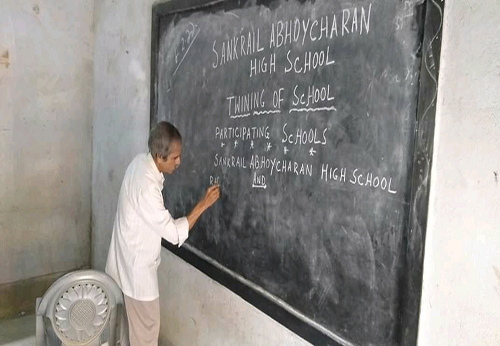 SANKRAIL ABHOYCHARAN
HIGH SCHOOL
TWINING OF SCHOOL
PARTICIPATING SCHOOLS
* * * * *
SANKRAIL ABHOYCHARAN HIGH SCHOOL
AND